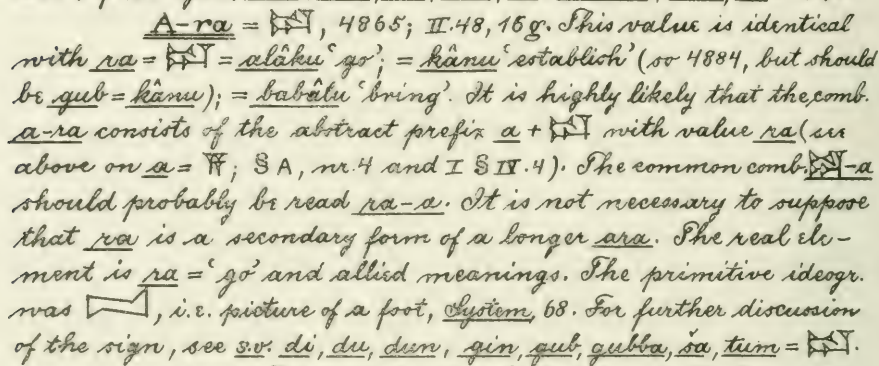 A-ra = 𒁺, 4865; II.48, 15g. This value is identical
with ra = 𒁺 = alâku 'go'; = kânu 'establish' (so 4884, but should
be gub = kânu); = babâlu 'bring'. It is highly likely that the comb.
a-ra consists of the abstract prefix a + 𒁺 with value ra (see
above on a = 𒀀; § A, nr. 4 and I § IV. 4). The common comb. 𒁺-a
should probably be read ra-a. It is not necessary to suppose
that ra is a secondary form of a longer ara. The real ele-
ment is ra = 'go' and allied meanings. The primitive ideogr.
was , i.e. picture of a foot, System, 68. For further discussion
of the sign, see s.v. di, du, dun, gin, gub, gubba, ša, tum = 𒁺.